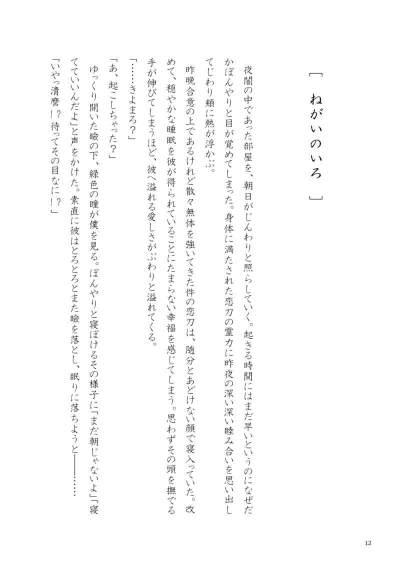 ［ねがいのいろ］
夜闇の中であった部屋を、朝日がじんわりと照らしていく。起きる時間にはまだ早いというのになぜだ
かぼんやりと目が覚めてしまった。身体に満たされた恋刀の霊力に昨夜の深い深い睦み合いを思い出し
てじわり頬に熱が浮かぶ。
昨晩合意の上であるけれど散々無体を強いてきた件の恋刀は、随分とあどけない顔で寝入っていた。改
めて、穏やかな睡眠を彼が得られていることにたまらない幸福を感じてしまう。思わずその頭を撫でる
手が伸びてしまうほど、彼へ溢れる愛しさがぶわりと溢れてくる。
「……きよまろ？」
「あ、起こしちゃった？」
ゆっくり開いた瞼の下、緑色の瞳が僕を見る。ぼんやりと寝ぼけるその様子に「まだ朝じゃないよ」「寝
てていいんだよ」と声をかけた。素直に彼はとろとろとまた瞼を落とし、眠りに落ちようと――……
「いやっ清麿！？待ってその目なに！？」
12